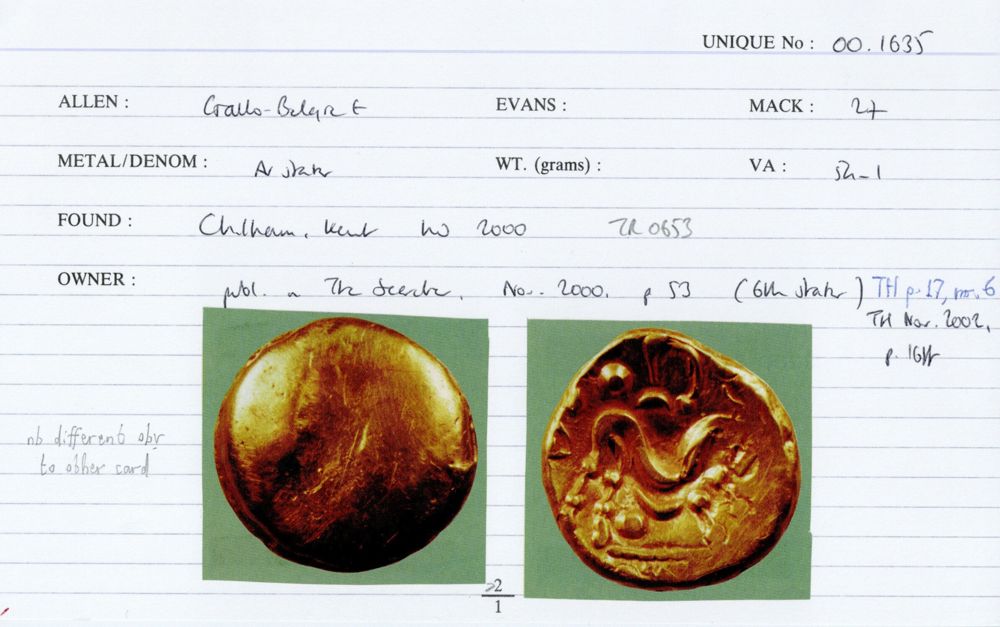 UNIQUE No : 00.1635
ALLEN : Gallo-Belgic E EVANS : MACK : 27
METAL/DENOM : Av stater WT. (grams) : VA : 52-1
FOUND : Chilham, Kent 2000 TR 0653
OWNER : publ. in The Searcher, Nov. 2000, p 53 (6th stater) TH p. 17, no. 6
TH Nov. 2002,
p. 16ff
nb different obv
to other card
2
1